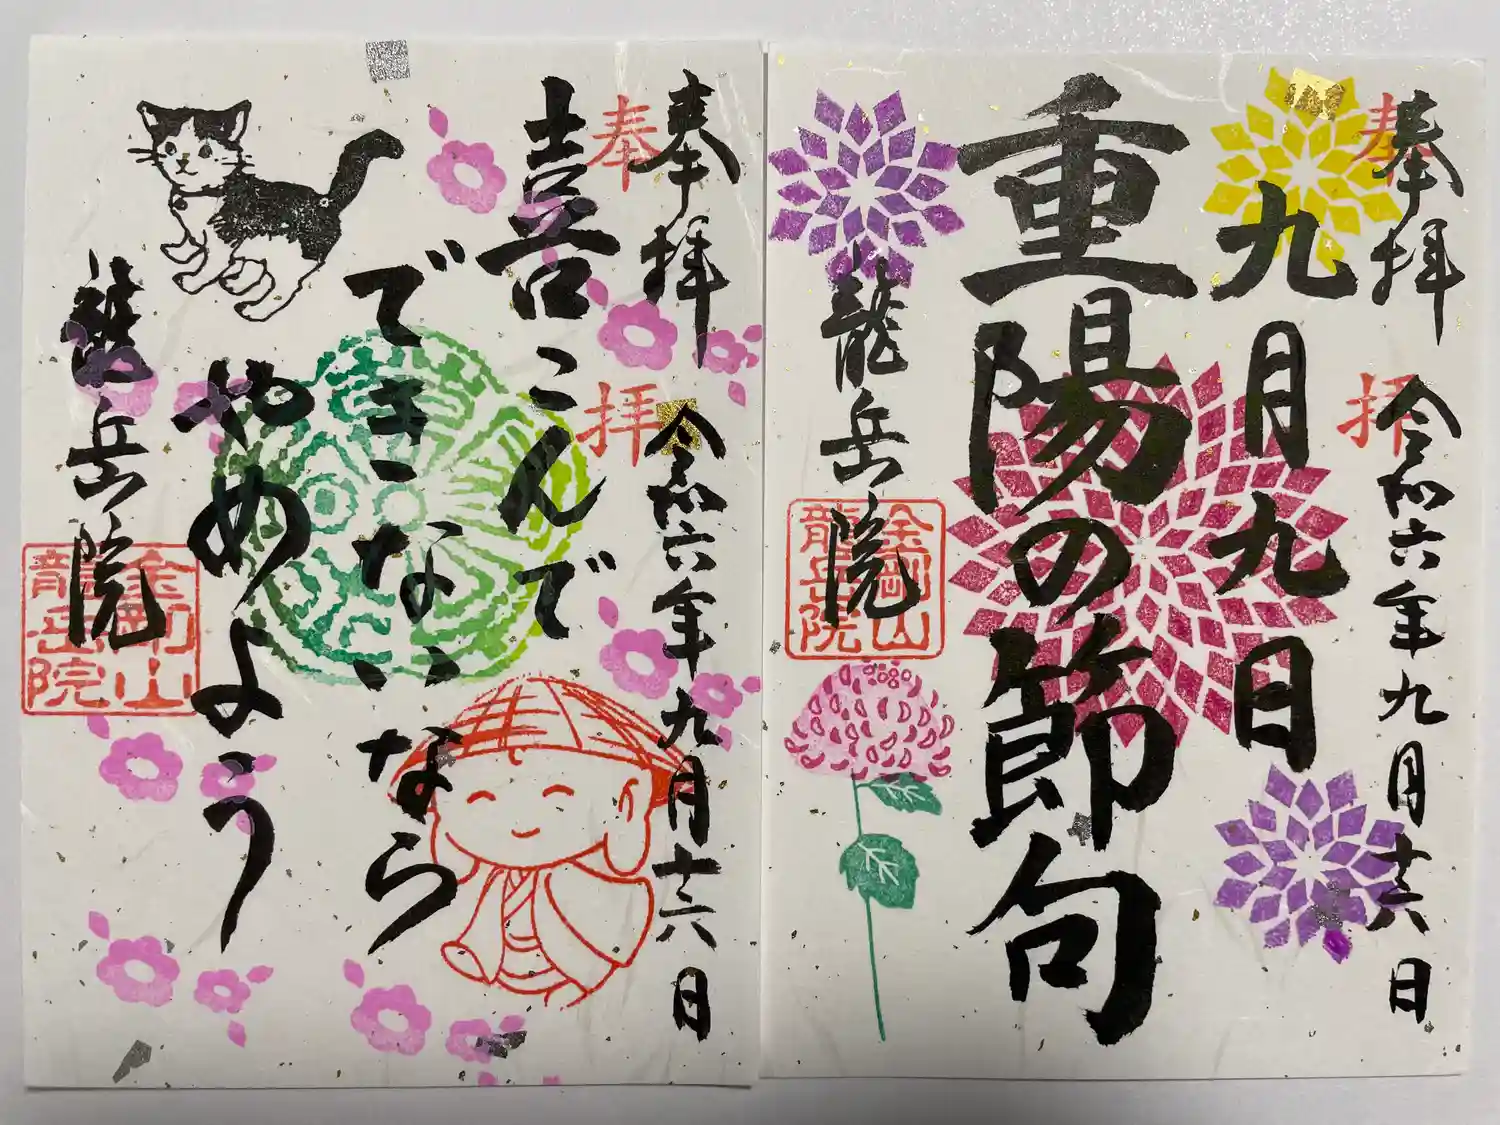 奉拝
令和六年九月十六日
九月九日
重陽の節句
龍岳院
奉拝
金剛山
龍岳院
奉拝
令和六年九月十六日
喜こんで
できないなら
やめよう
龍岳院
奉拝
金剛山
龍岳院